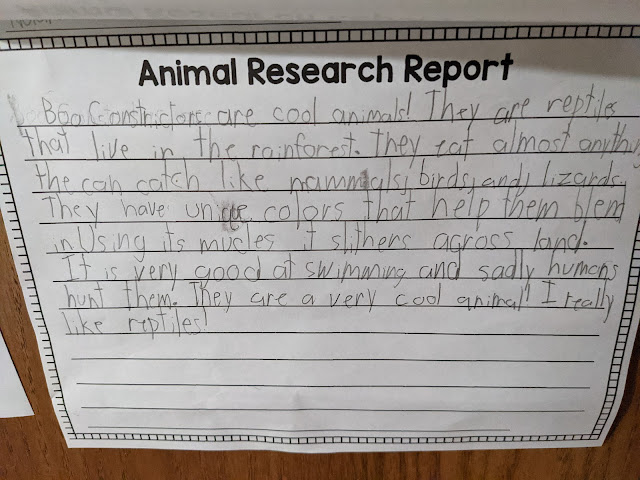 Animal Research Report
Boa Constrictors are cool animals! They are reptiles
that live in the rainforest. They eat almost anything
the can catch like nammals, birds, and lizards.
They have unique colors that help them blend
in Using its mucles it slithers across land.
It is very good at swimming and sadly humans
hunt them. They are a very cool animal! I really
like reptiles!